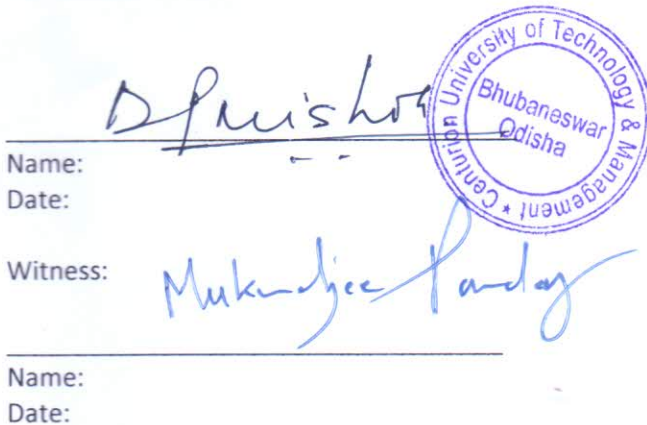 DPMishra
Centurion University of Technology & Management *
Bhubaneswar
Odisha
Name:
Date:
Witness:
Mukundjee Panday
Name:
Date: